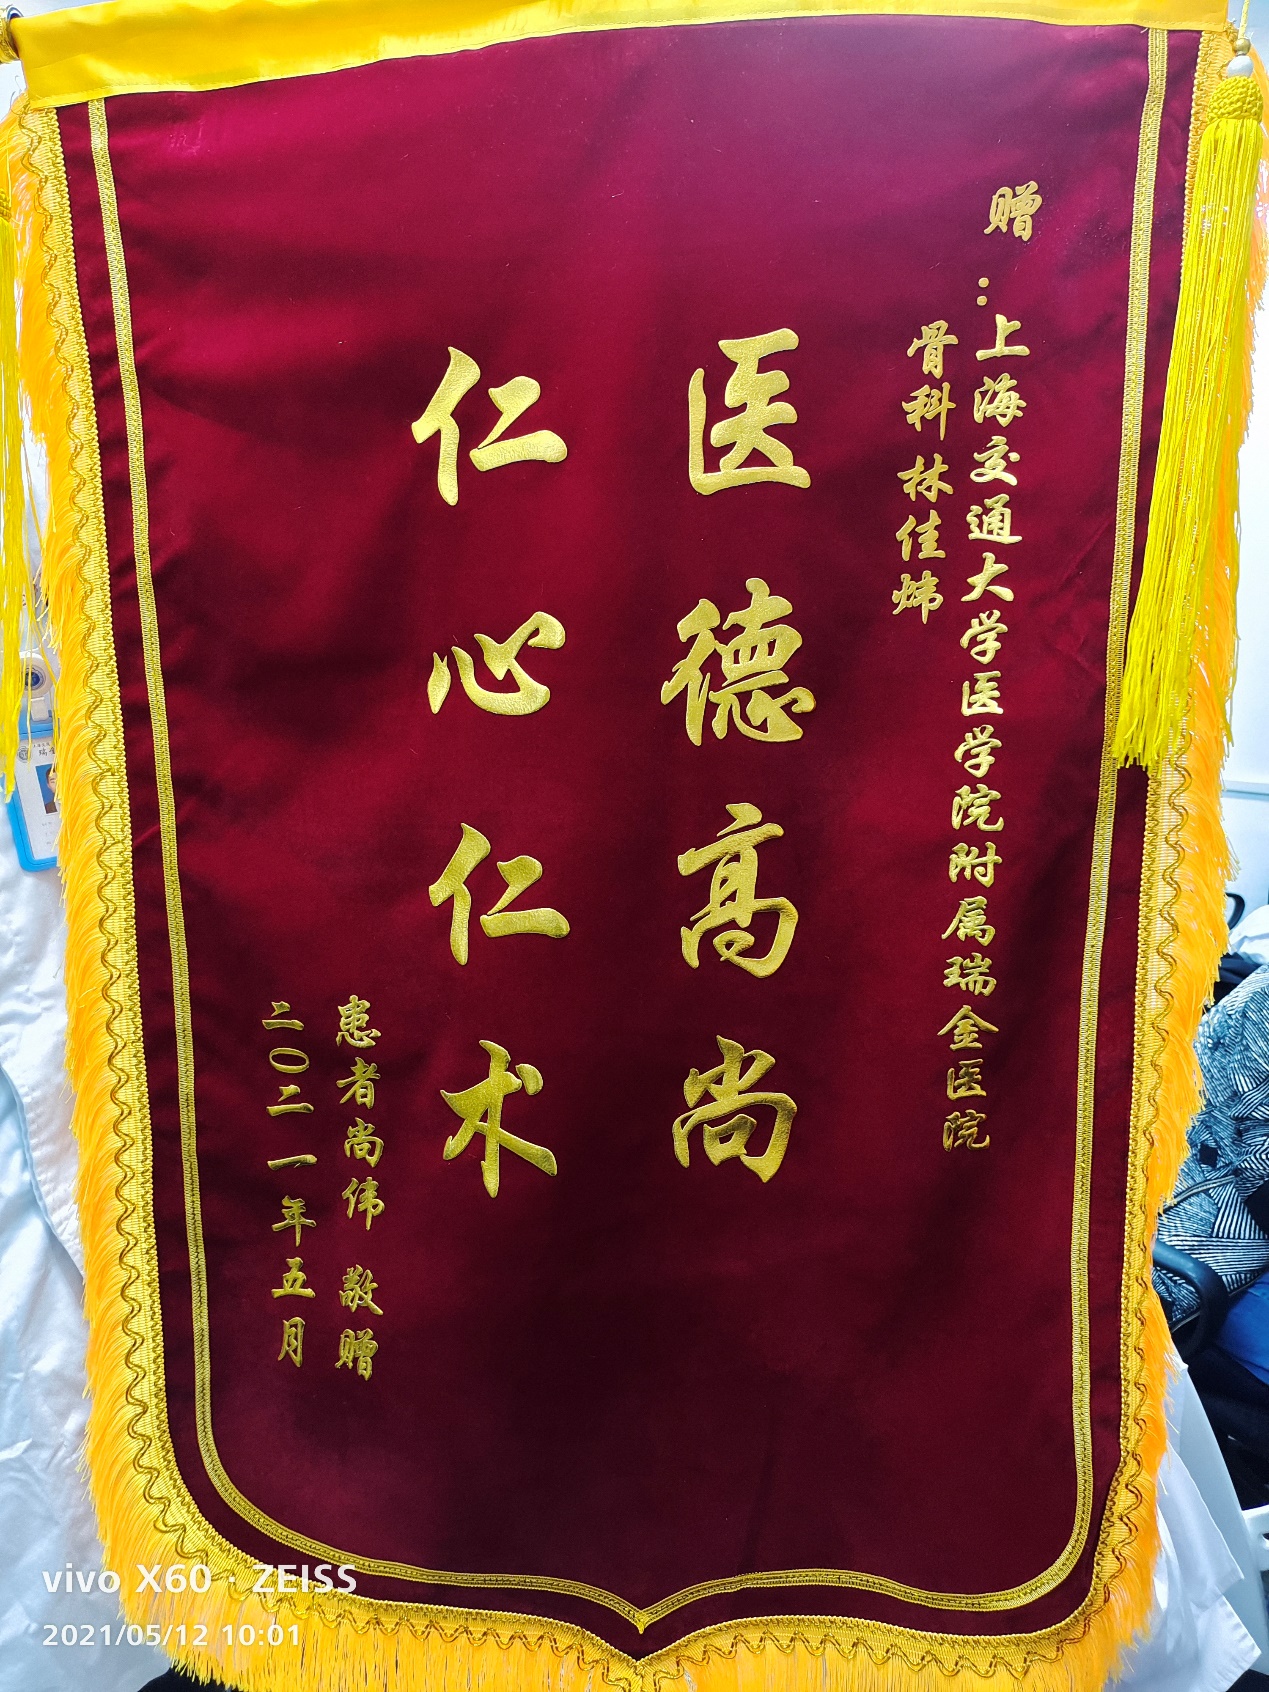 赠：上海交通大学医学院附属瑞金医院
骨科 林佳炜
医德高尚
仁心仁术
患者尚伟 敬赠
二〇二一年五月
vivo X60 · ZEISS
2021/05/12 10:01